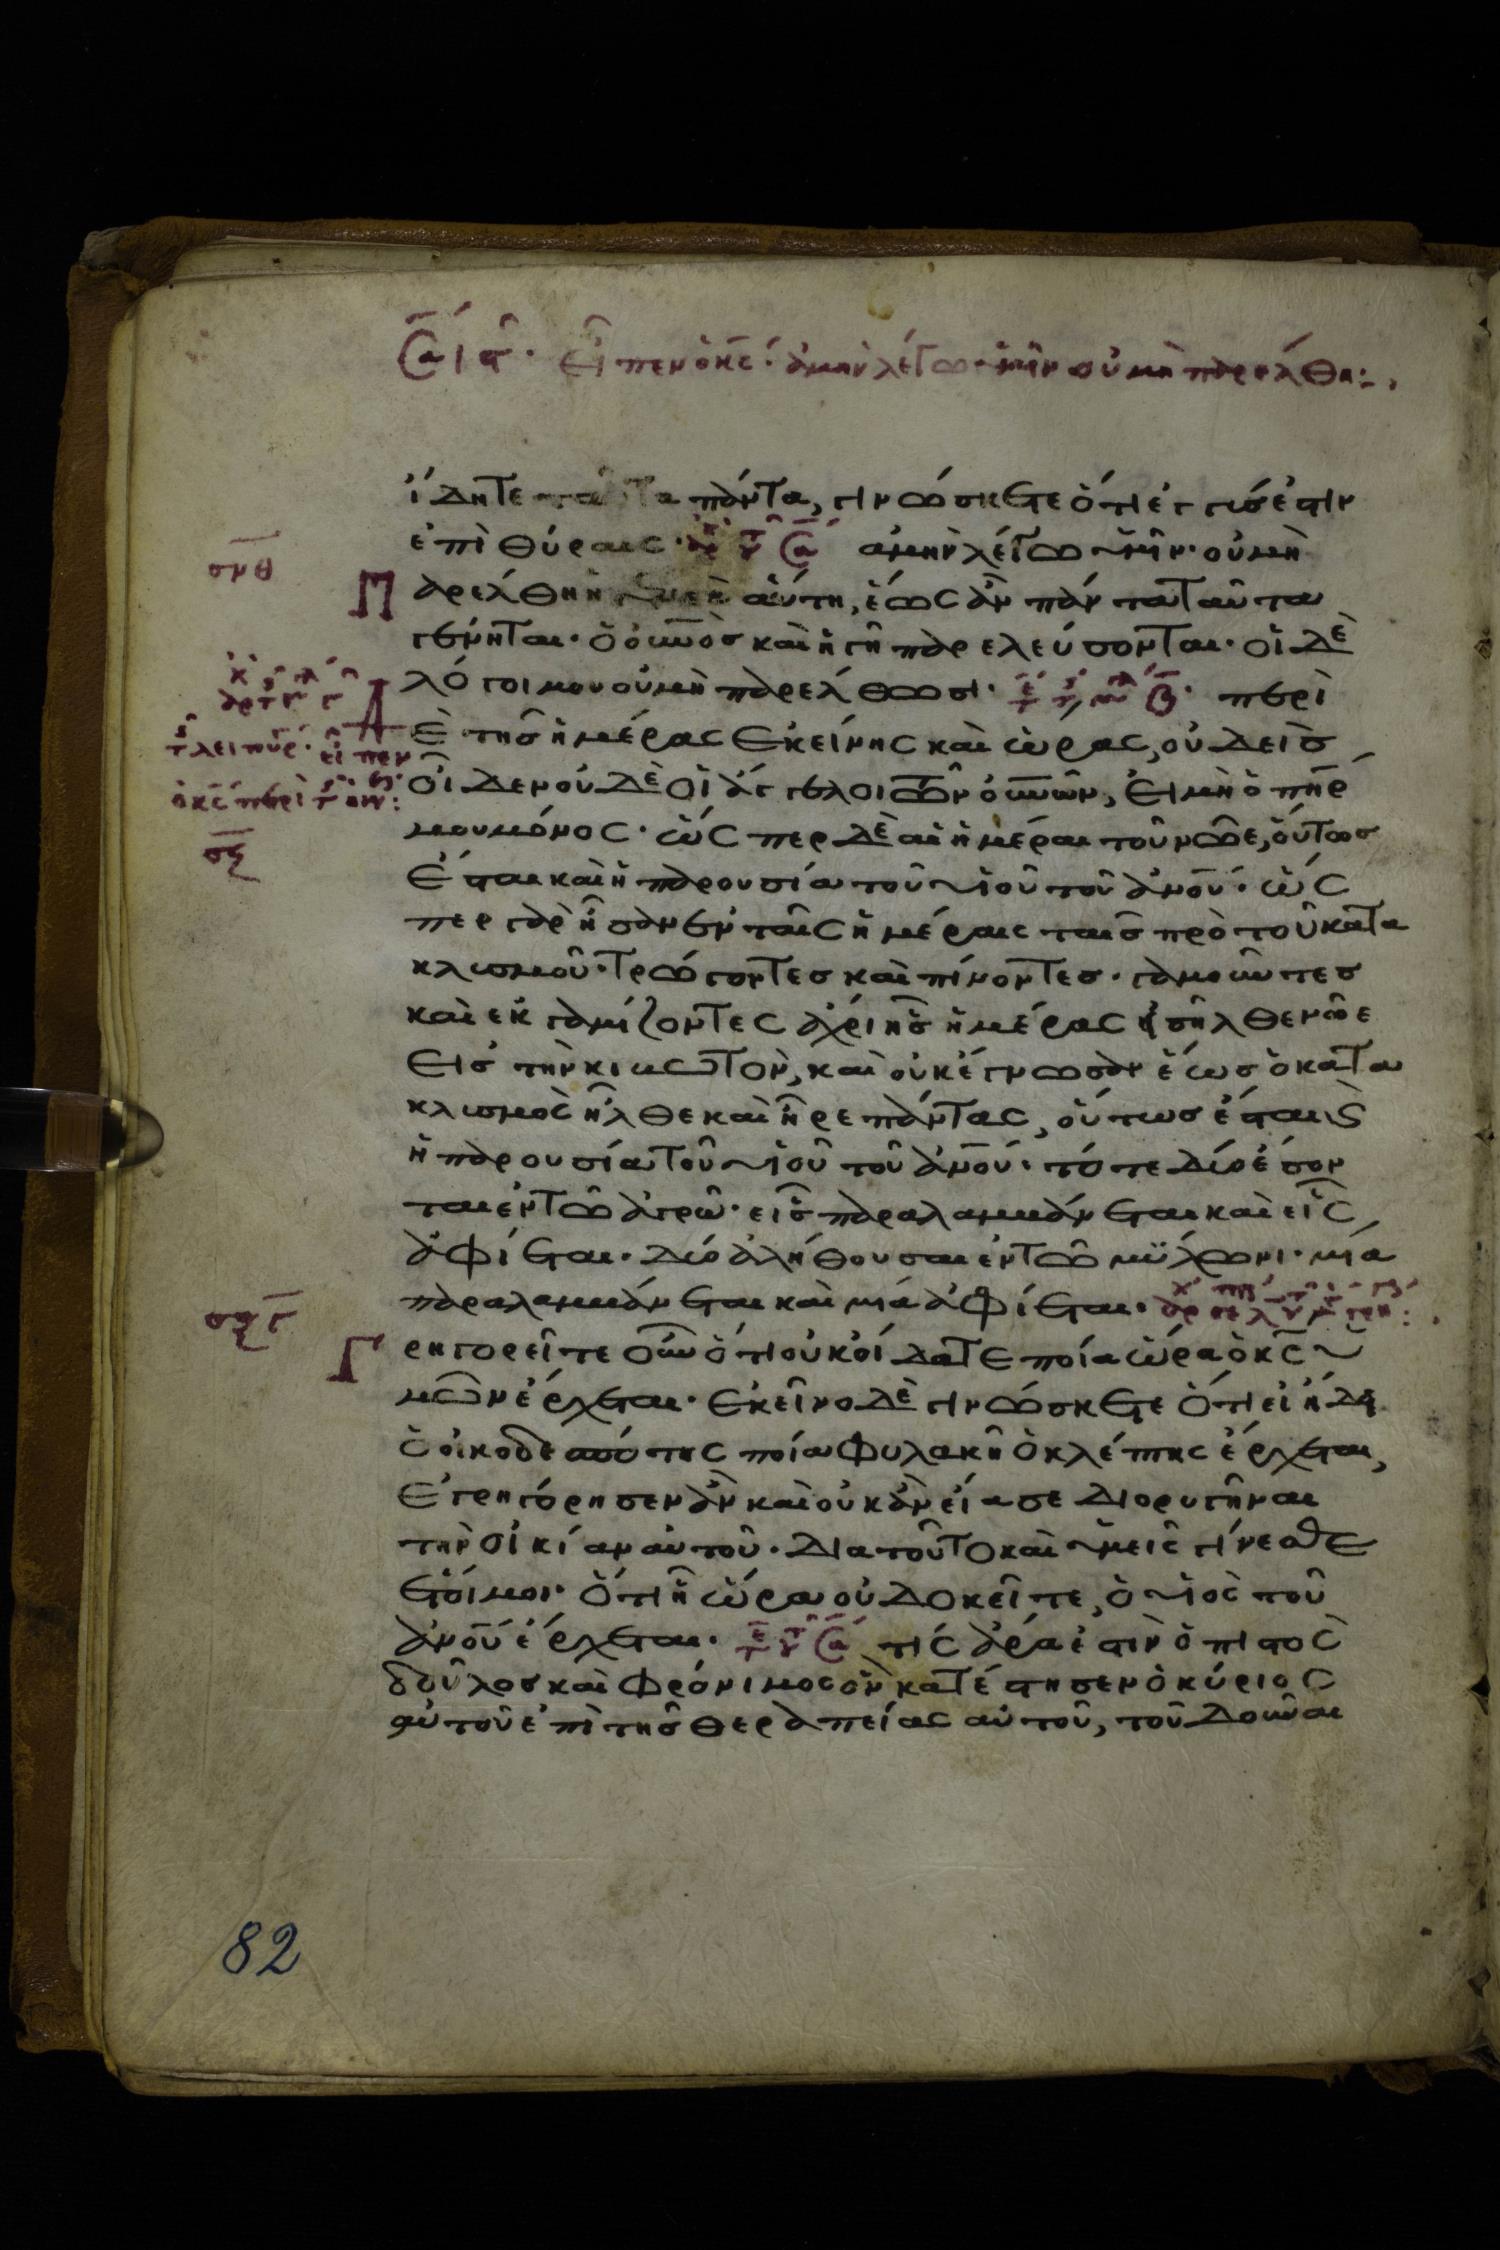 Εἶπεν ὁ κς· ἀμὴν λέγω ὑμῖν οὐ μὴ παρέλθη:
ἴδητε ταῦτα πάντα, γινώσκετε ὅτι ἐγγύς ἐστιν
ἐπὶ θύραις· ἀμὴν λέγω ὑμῖν· οὐ μὴ
σνθ
Παρέλθη ἡ γενεὰ αὕτη, ἕως ἂν πάντα ταῦτα
γένηται· ὁ οὐνος καὶ ἡ γῆ παρελεύσονται· οἱ δὲ
λόγοι μου οὐ μὴ παρέλθωσι· περὶ
δὲ τῆς ἡμέρας ἐκείνης καὶ ὥρας, οὐδεὶς
εἶπεν
ὁ κς περὶ
οἶδεν οὐδὲ οἱ ἄγγελοι τῶν οὐνων, εἰ μὴ ὁ πηρ
σξ
μου μόνος· ὥσπερ δὲ αἱ ἡμέραι τοῦ νῶε, οὕτως
ἔσται καὶ ἡ παρουσία τοῦ υἱοῦ τοῦ ἀνου· ὥσ
περ γὰρ ἦσαν ἐν ταῖς ἡμέραις ταῖς πρὸ τοῦ κατα
κλυσμοῦ· τρώγοντες καὶ πίνοντες· γαμοῦντες
καὶ ἐκγαμίζοντες ἄχρι ἧς ἡμέρας εἰσῆλθε νῶε
εἰς τὴν κιβωτὸν, καὶ οὐκ ἔγνωσαν ἕως ὁ κατα
κλυσμὸς ἦλθε καὶ ἦρε πάντας, οὕτως ἔσται ϗ
ἡ παρουσία τοῦ υἱοῦ τοῦ ἀνου· τότε δύο ἔσον
ται ἐν τῶ ἀγρῶ· εἷς παραλαμβάνεται καὶ εἷς
ἀφίεται· δύο ἀλήθουσαι ἐν τῶ μύλωνι· μία
παραλαμβάνεται καὶ μία ἀφίεται·
Γρηγορεῖτε οὖν ὅτι οὐκ οἴδατε ποία ὥρα ὁ κς ὑ
μῶν ἔρχεται· ἐκεῖνο δὲ γινώσκετε ὅτι εἰ ἤδη
ὁ οἰκοδεσπότης ποία φυλακῆ ὁ κλέπτης ἔρχεται,
ἐγρηγόρησεν ἂν καὶ οὐκ ἂν εἴασε διορυγῆναι
τὴν οἰκίαν αὐτοῦ· διατοῦτο καὶ ὑμεῖς γίνεσθε
ἕτοιμοι· ὅτι ἧ ὥρα οὐ δοκεῖτε, ὁ υἱὸς τοῦ
ἀνου ἔρχεται· τίς ἄρα ἐστὶν ὁ πιστὸς
δοῦλος καὶ φρόνιμος ὃν κατέστησεν ὁ κύριος
αὐτοῦ ἐπὶ τῆς θεραπείας αὐτοῦ, τοῦ δοῦναι
82